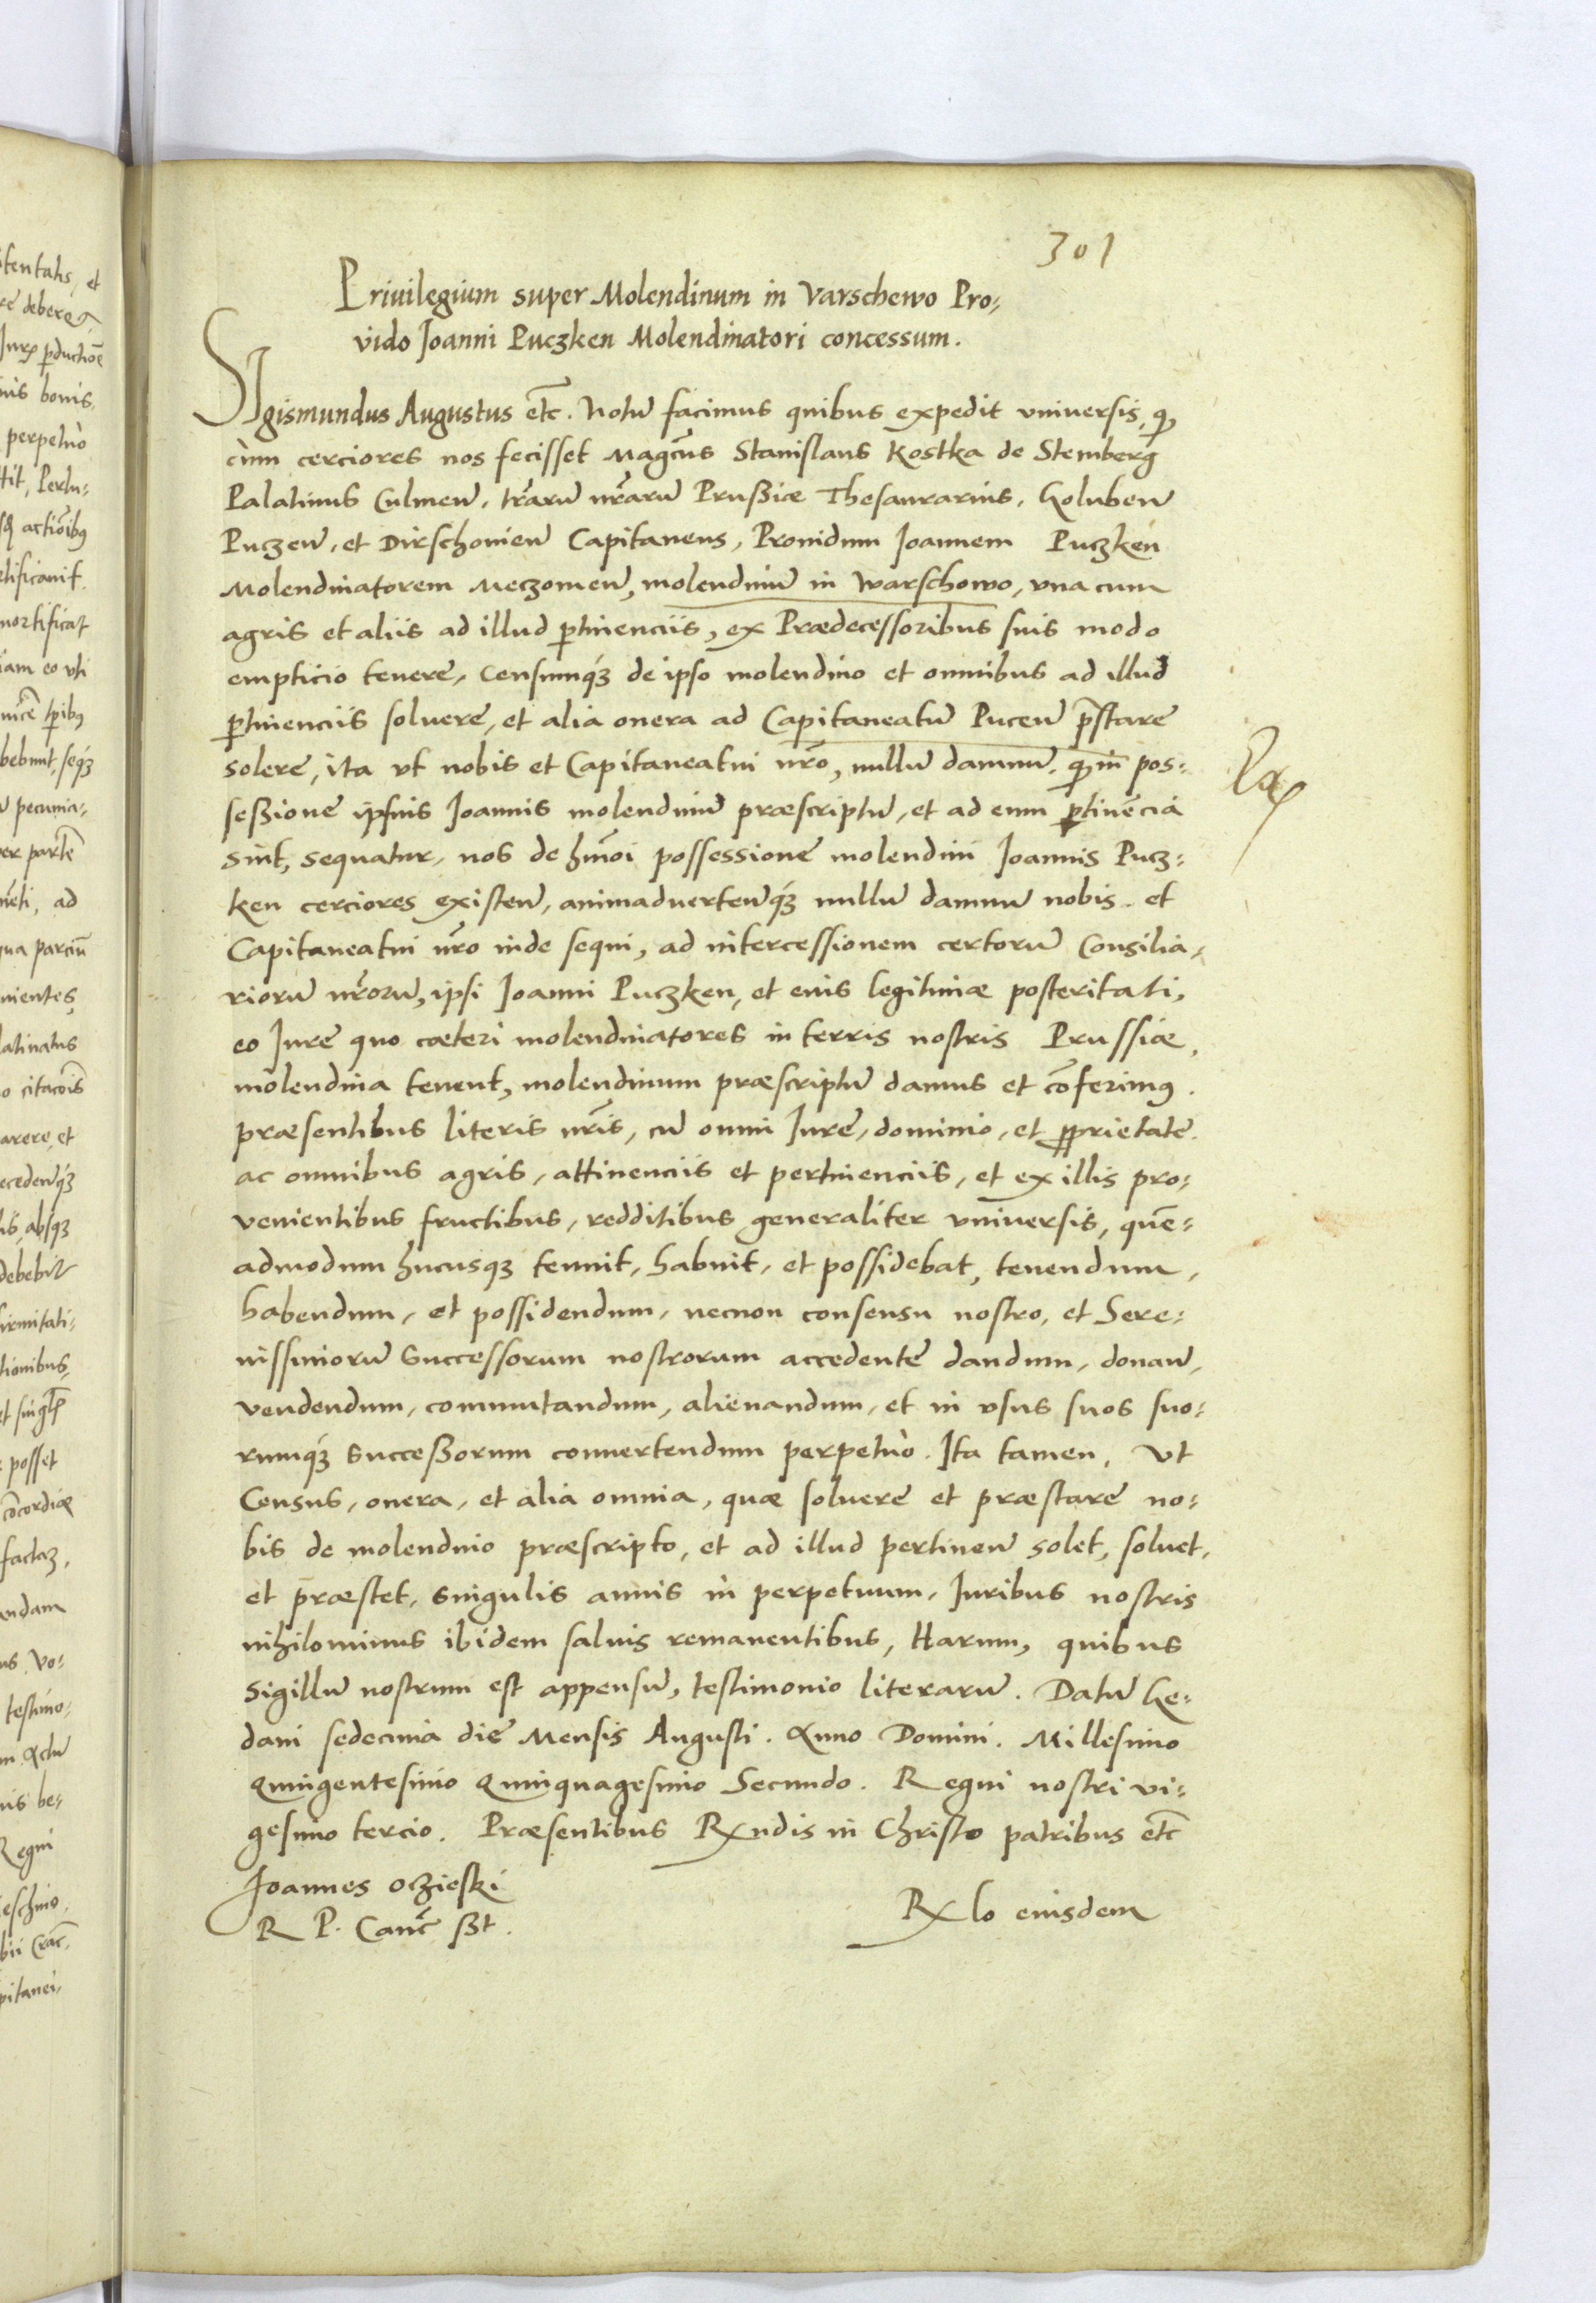 301
Priuilegium super Molendinum in Varschewo Pro-
vido Joanni Puczken Molendinatori concessum.
Sigismundus Augustus etc. Notũ facimus quibus expedit vniuersis, q̃
cùm cerciores nos fecisset Magcus Stanislaus Kostka de Stemberg
Palatinus Culmeñ, trãrũ nrãrũ Prußiæ Thesaurarius, Golubeñ
Puczeñ, et Dirschouieñ Capitaneus, Prouidum Joannem Puczken
Molendinatorem Meczomeñ, molendinũ in Warschowo, vna cum
agris et aliis ad illud ꝑtinenciis, ex Prædecessoribus suis modo
empticio tenere, censumq́ꝫ de ipso molendino et omnibus ad illud
ꝑtinenciis soluere, et alia onera ad Capitaneatũ Puceñ p̃stare
solere, ita vt nobis et Capitaneatui nrõ, nullũ damnũ, q̃ in pos-
seßione ipsius Joannis molendinũ præscriptũ, et ad eum ꝑtinẽcia
sint, sequatur, nos de hmõi possessione molendini Joannis Pucz-
ken cerciores existeñ, animaduerteñq́ꝫ nullũ damnũ nobis et
Capitaneatui nrõ inde sequi, ad intercessionem certorũ Consilia-
riorũ nrõrũ, ipsi Joanni Puczken, et eius legitimæ posteritati,
eo Jure quo cæteri molendinatores in terris nostris Prussiæ,
molendina tenent, molendinum præscriptũ damus et cõferimꝰ.
præsentibus literis nrĩs, cũ omni Jure, dominio, et ꝓprietate
ac omnibus agris, attinenciis et pertinenciis, et ex illis pro-
venientibus fructibus, redditibus generaliter vniuersis, quẽ-
admodum hucusqꝫ tenuit, habuit, et possidebat, tenendum,
habendum, et possidendum, necnon consensu nostro, et Sere-
nissimorũ Successorum nostrorum accedente dandum, donañ,
vendendum, commutandum, alienandum, et in vsus suos suo-
rumq́ꝫ succeßorum conuertendum perpetuò. Ita tamen, Vt
Census, onera, et alia omnia, quæ soluere et præstare no-
bis de molendino præscripto, et ad illud pertineñ solet, soluet,
et præstet, singulis annis in perpetuum, Juribus nostris
nihilominus ibidem saluis remanentibus, Harum, quibus
sigillũ nostrum est appensũ, testimonio literarũ. Datũ Ge-
dani sedecima die Mensis Augusti. Anno Domini. Millesimo
Quingentesimo Quinquagesimo Secundo. Regni nostri vi-
gesimo tercio. Præsentibus Rxndis in Christo patribus etc
Joannes Oczieski
R P. Canc ßt.
Rxlo eiusdem